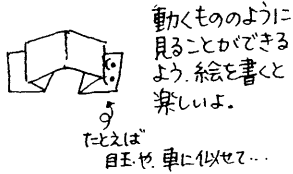 動くもののように
見ることができる
よう、絵を書くと
楽しいよ。
たとえば
目玉や、車に似せて…